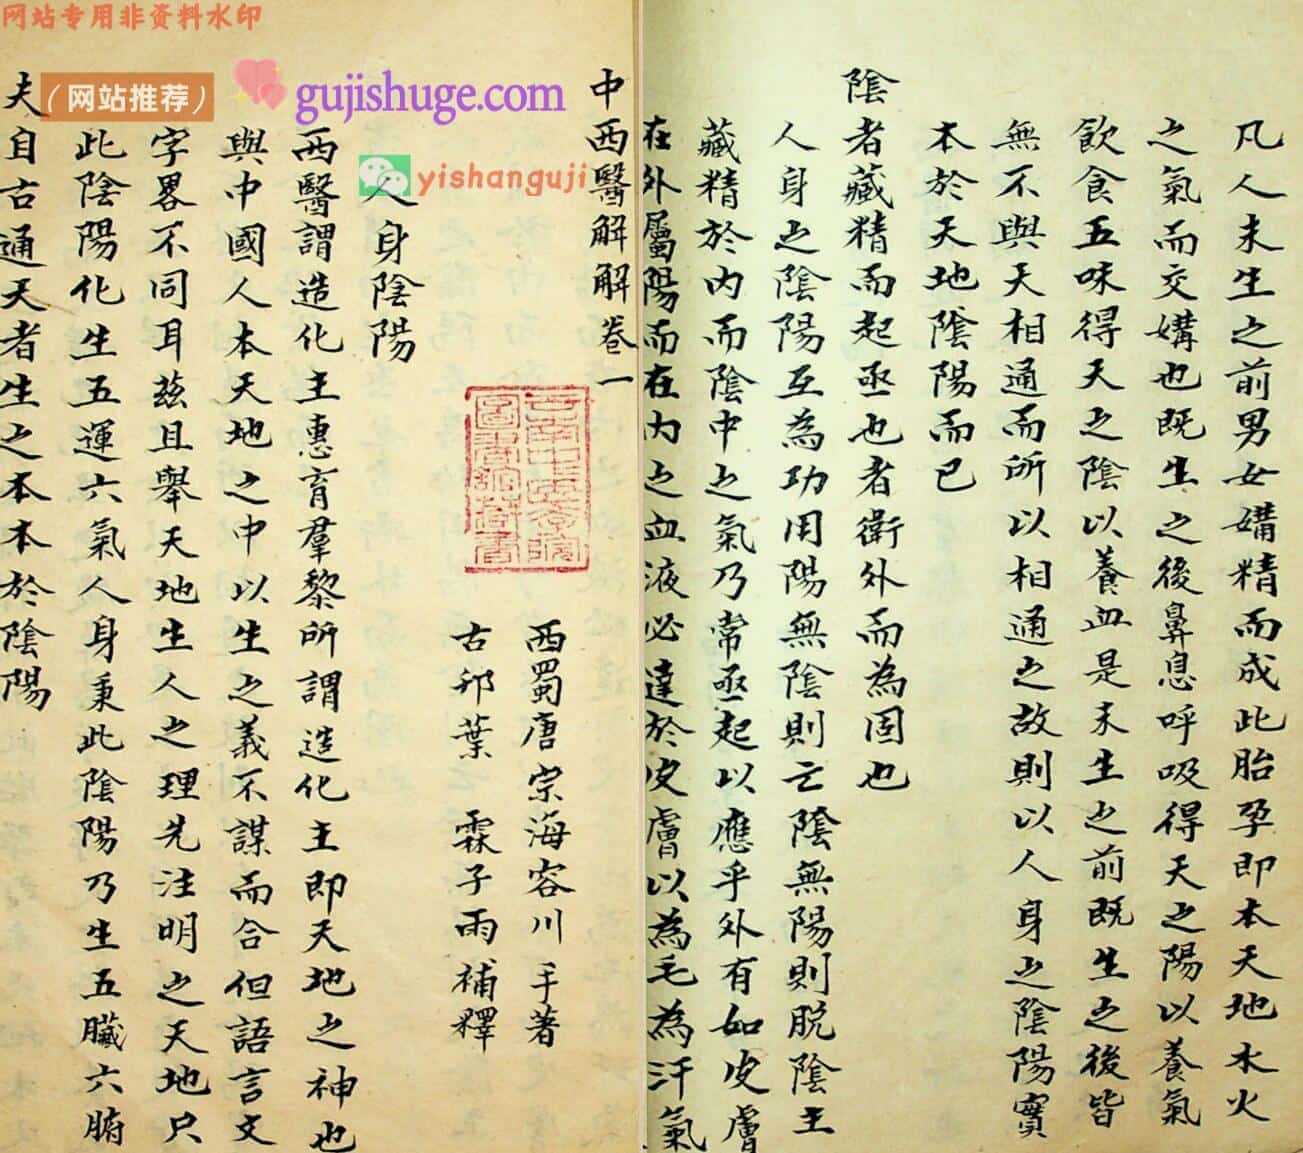 网站专用非资料水印
（网站推荐）
gujishuge.com
yishanguji
中西醫解解卷一
云南中医学院
圖書館藏書
西蜀唐宗海容川手著
古邘葉　霖子雨補釋
人身陰陽
西醫謂造化主惠育羣黎所謂造化主即天地之神也
與中國人本天地之中以生之義不謀而合但語言文
字畧不同耳茲且舉天地生人之理先注明之天地只
此陰陽化生五運六氣人身秉此陰陽乃生五臟六腑
夫自古通天者生之本本於陰陽
凡人未生之前男女媾精而成此胎孕即本天地水火
之氣而交媾也既生之後鼻息呼吸得天之陽以養氣
飲食五味得天之陰以養血是未生之前既生之後皆
無不與天相通而所以相通之故則以人身之陰陽實
本於天地陰陽而已
陰者藏精而起亟也者衛外而為固也
人身之陰陽互為功用陽無陰則亡陰無陽則脫陰主
藏精於內而陰中之氣乃常亟起以應乎外有如皮膚
在外屬陽而在內之血液必達於皮膚以為毛為汗氣